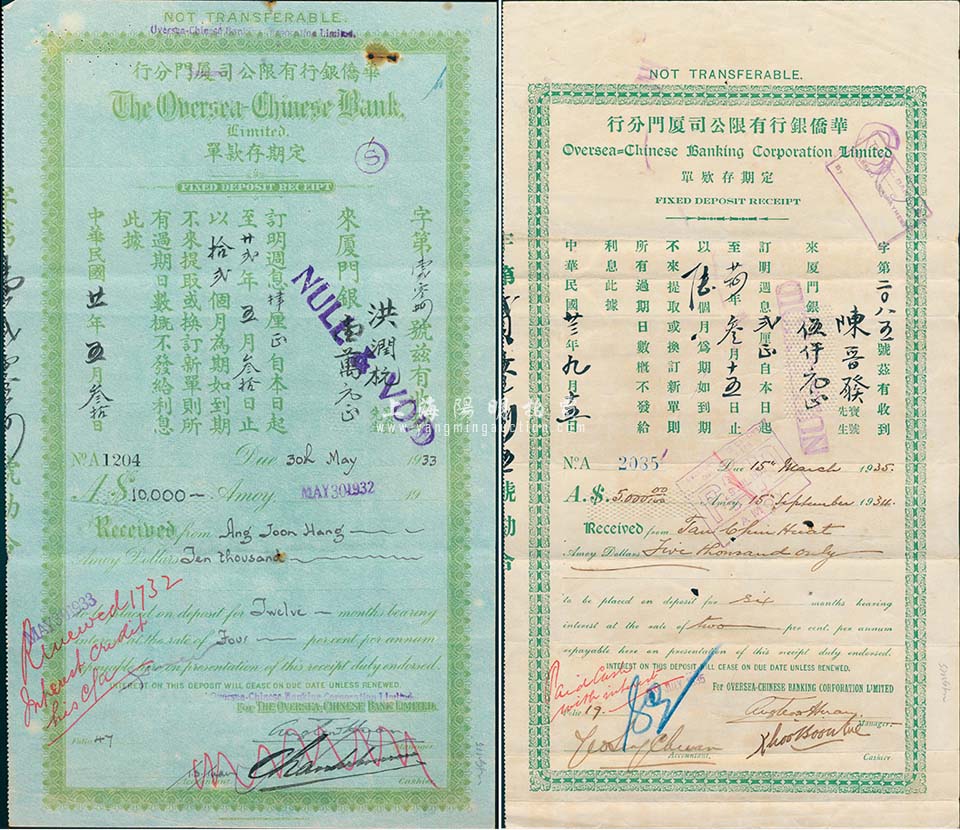 NOT TRANSFERABLE.
Oversea-Chinese Banking Corporation Limited.
行分門厦司公限有行銀僑華
The Oversea-Chinese Bank,
Limited.
單款存期定
FIXED DEPOSIT RECEIPT
S
洪潤杭
來厦門銀壹萬元正
訂明週息肆厘正自本日起
至廿貳年五月叁拾日止
以拾貳個月為期如到期
不來提取或換訂新單則所
有過期日數概不發給利息
此據
中華民國廿一年五月叁拾日
NULL & VOID
No. A 1204
Due 30th May 1933
A. $. 10,000 — Amoy, MAY 30 1932 19
Received from Ang Joon Hang
Amoy Dollars Ten thousand
to be placed on deposit for Twelve months bearing
interest at the rate of Four per cent per annum
repayable here on presentation of this receipt duly endorsed.
INTEREST ON THIS DEPOSIT WILL CEASE ON DUE DATE UNLESS RENEWED.
Oversea-Chinese Banking Corporation Limited.
FOR THE OVERSEA-CHINESE BANK LIMITED.
MAY 30 1933
Renewed 1732
Interest credit
his c/a
Folio 47
Manager.
Accountant
Cashier.
NOT TRANSFERABLE.
行分門厦司公限有行銀僑華
Oversea-Chinese Banking Corporation Limited
單欵存期定
FIXED DEPOSIT RECEIPT
字第二〇八五號茲有收到
陳晉發寶號先生
來厦門銀伍仟元正
訂明週息貳厘正自本日起
至廿四年叁月十五日止
以陸個月爲期如到期
不來提取或換訂新單則
所有過期日數概不發給
利息此據
中華民國廿三年九月十五日
NULL & VOID
No. A 2085
Due 15th March 1935.
A. $. 5000 00/00 Amoy, 15 September 1934
Received from Tan Chin Huat
Amoy Dollars Five thousand only
to be placed on deposit for six months bearing
interest at the rate of two per cent. per annum
repayable here on presentation of this receipt duly endorsed.
INTEREST ON THIS DEPOSIT WILL CEASE ON DUE DATE UNLESS RENEWED.
For OVERSEA-CHINESE BANKING CORPORATION LIMITED
Paid Cash
with interest
Folio 19.
Manager.
Khoo Boon
Accountant.
Cashier.
上海陽明拍賣
www.yangmingauction.com